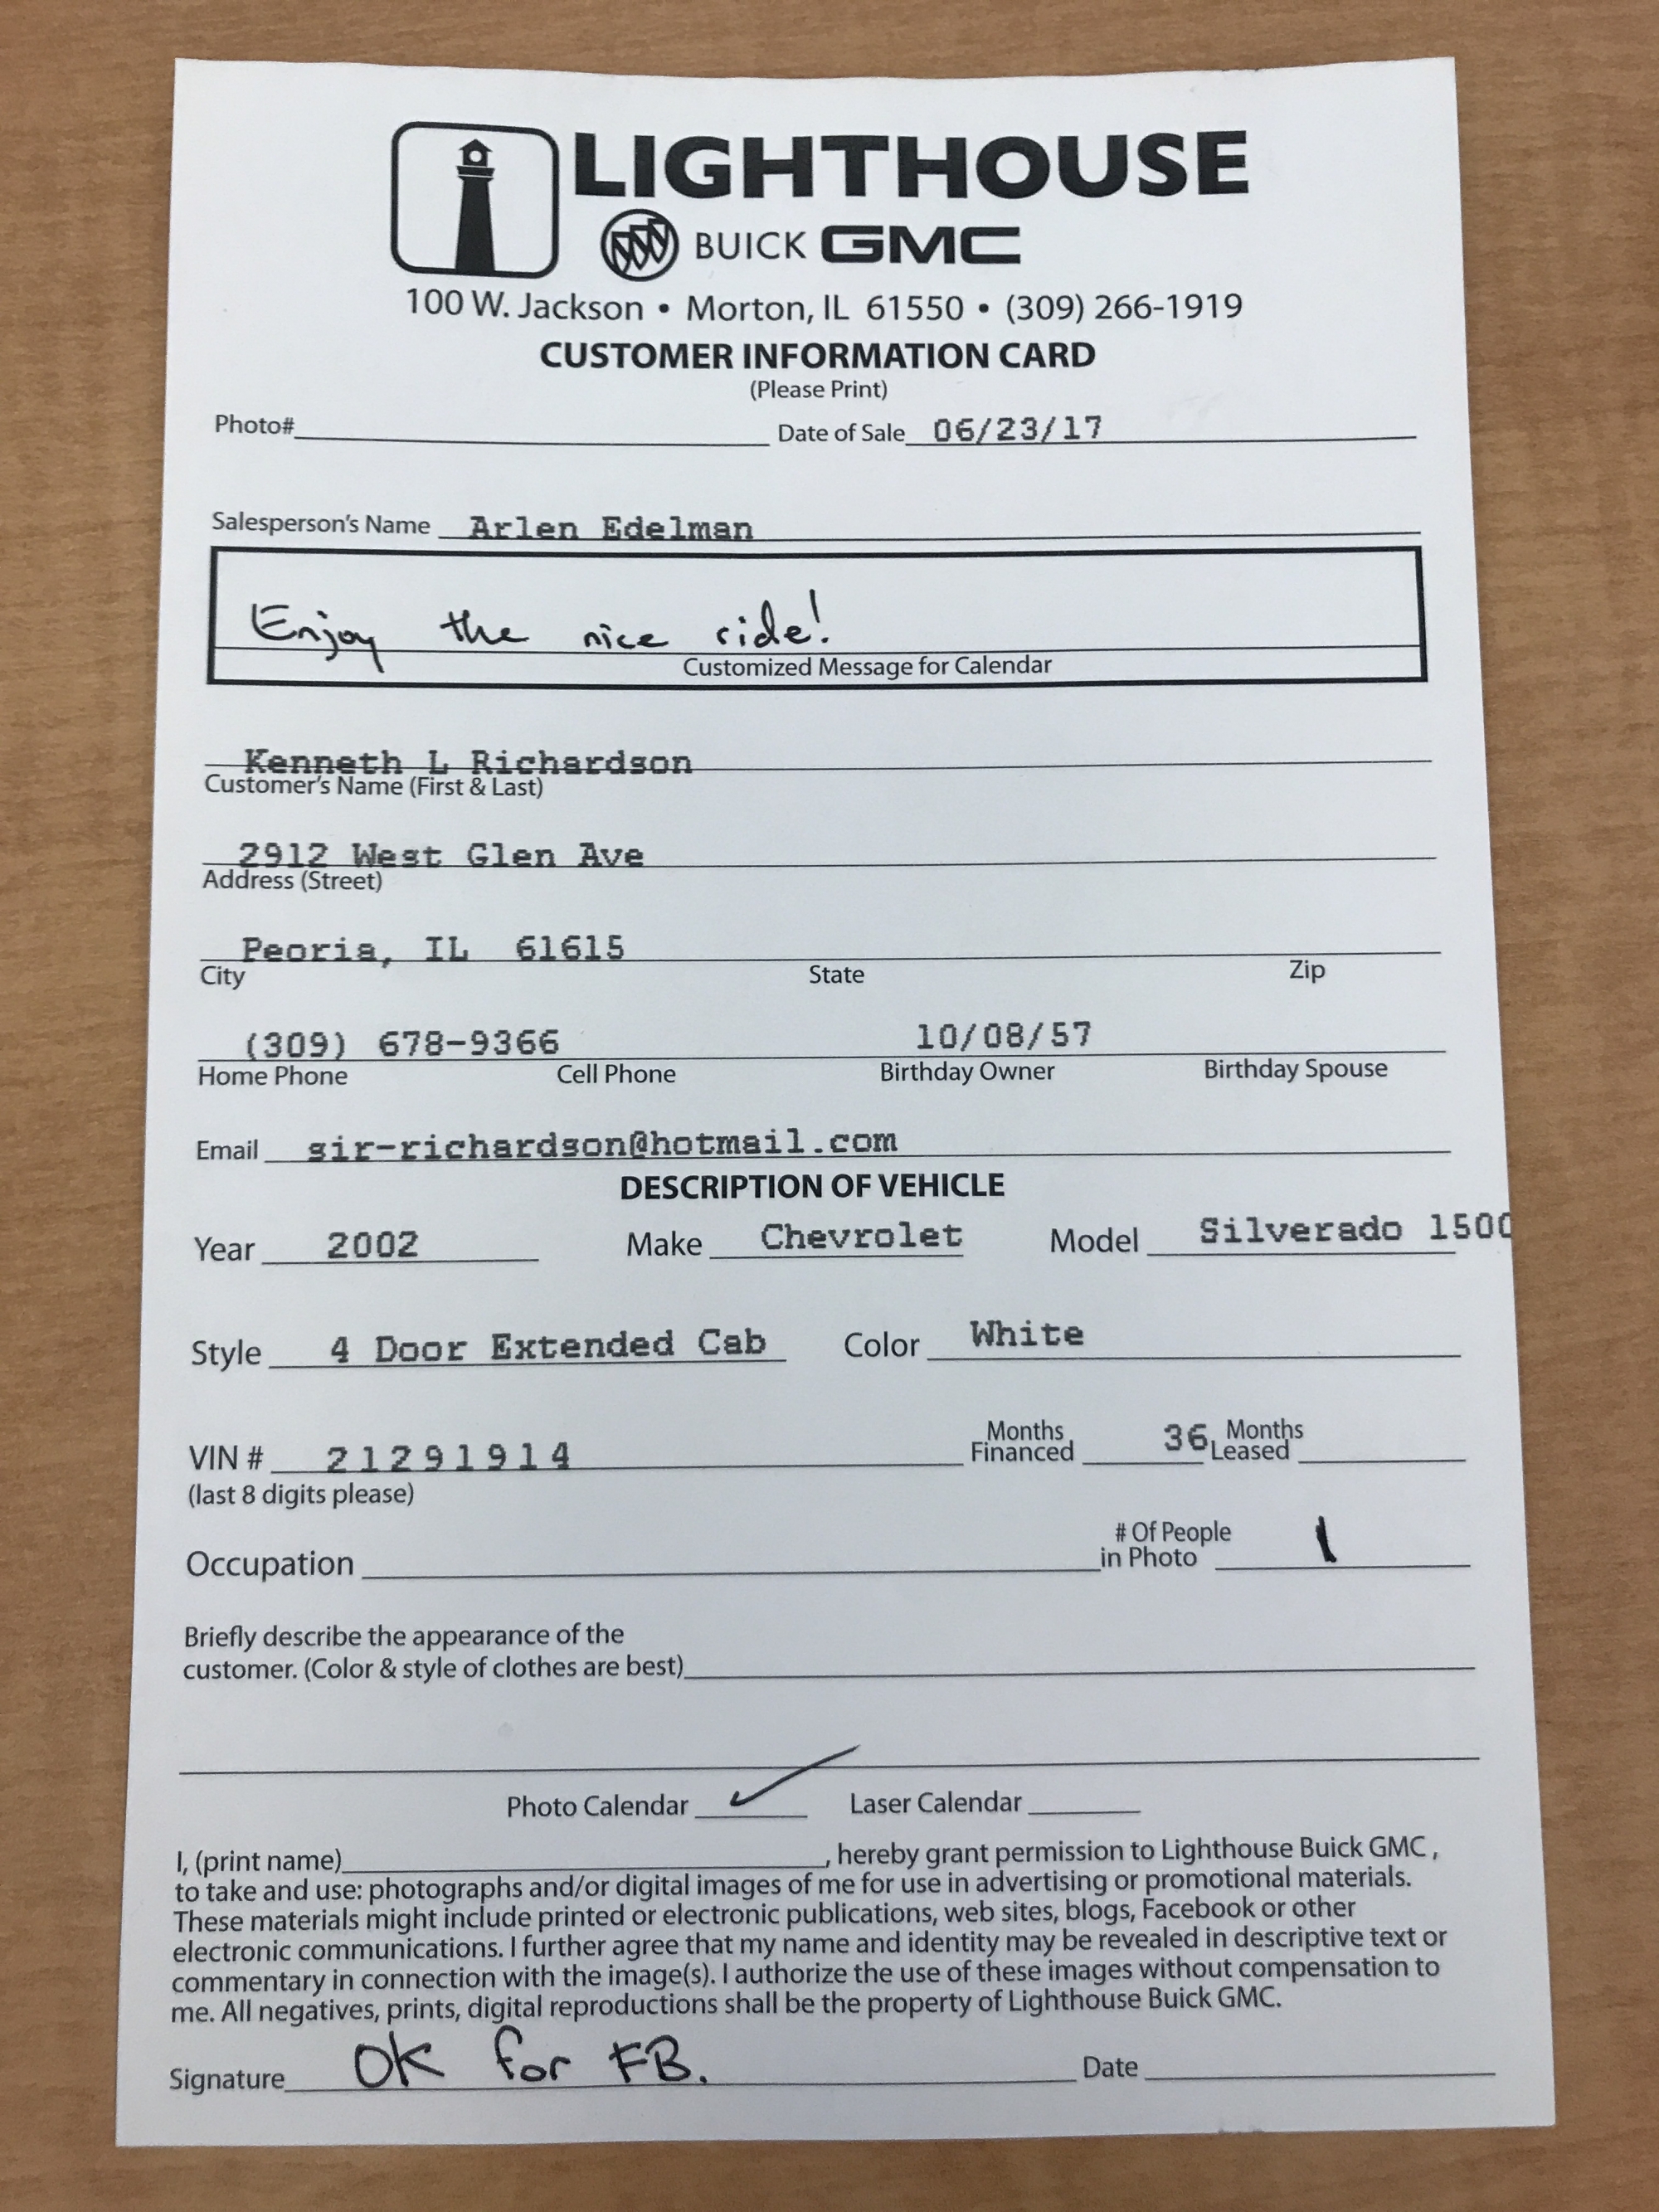 LIGHTHOUSE
BUICK GMC
100 W. Jackson • Morton, IL 61550 • (309) 266-1919
CUSTOMER INFORMATION CARD
(Please Print)
Photo# Date of Sale 06/23/17
Salesperson's Name Arlen Edelman
Enjoy the nice ride!
Customized Message for Calendar
Kenneth L Richardson
Customer's Name (First & Last)
2912 West Glen Ave
Address (Street)
Peoria, IL 61615
City State Zip
(309) 678-9366 10/08/57
Home Phone Cell Phone Birthday Owner Birthday Spouse
Email sir-richardson@hotmail.com
DESCRIPTION OF VEHICLE
Year 2002 Make Chevrolet Model Silverado 1500
Style 4 Door Extended Cab Color White
VIN # 21291914 Months Financed 36 Months Leased
(last 8 digits please)
Occupation # Of People in Photo 1
Briefly describe the appearance of the
customer. (Color & style of clothes are best)
Photo Calendar ✓ Laser Calendar
I, (print name) , hereby grant permission to Lighthouse Buick GMC ,
to take and use: photographs and/or digital images of me for use in advertising or promotional materials.
These materials might include printed or electronic publications, web sites, blogs, Facebook or other
electronic communications. I further agree that my name and identity may be revealed in descriptive text or
commentary in connection with the image(s). I authorize the use of these images without compensation to
me. All negatives, prints, digital reproductions shall be the property of Lighthouse Buick GMC.
Signature OK for FB. Date